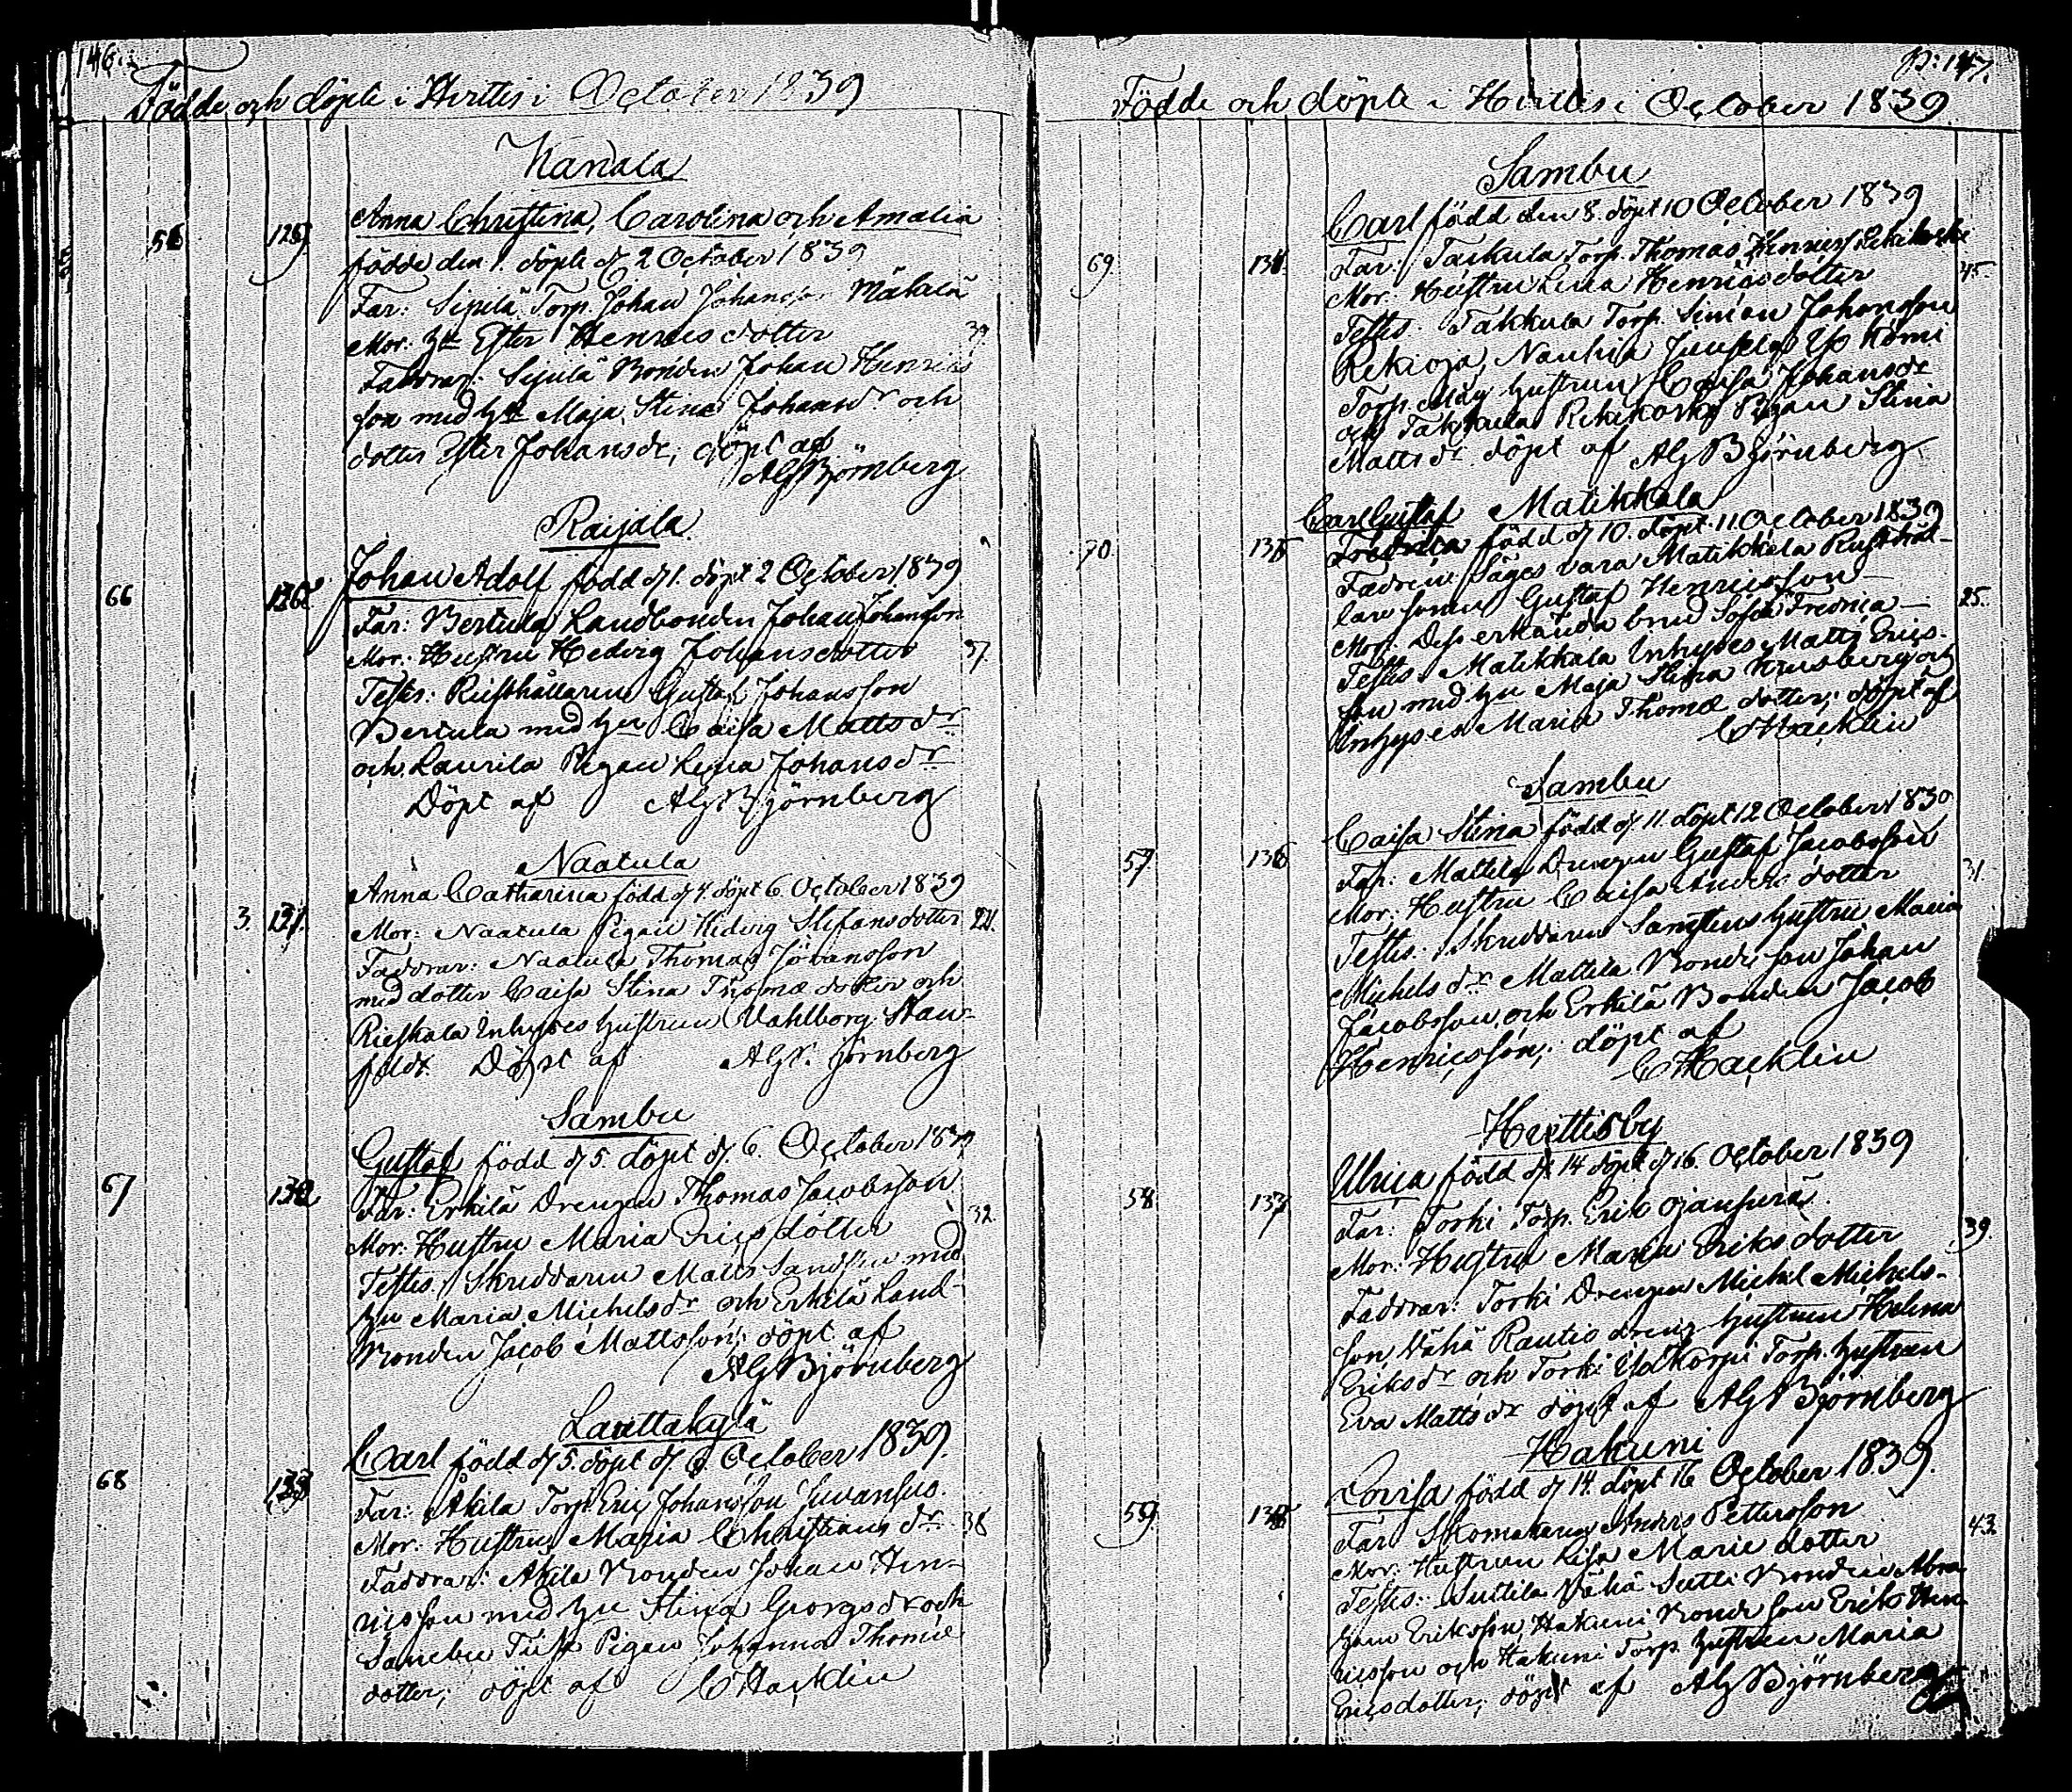 146
Födde och döpte i Hvittis i October 1839
Kanala
Anna Christina, Carolina och Amalia
56 129 födde den 1. döpte d 2 October 1839
Far: Sipilä Torp. Johan Johansson Mäkelä
Mor: Hu Ester Henricsdotter 39
Faddrar: Sipilä Bonden Johan Henrics
son med Hu Maja Stina Johansdr och
dotter Ester Johansdr, döpt af
AGBjörnberg
Raijala
Johan Adolf född d 1. döpt 2 October 1839
66 130 Far: Bertula Landbonden Johan Johansson
Mor: Hustru Hedvig Johansdotter 37.
Testes: Rusthållaren Gustaf Johansson
Bertula med Hu Caisa Mattsdr
och Laurila Pigan Lena Johansdr
Döpt af AGBjörnberg
Naatula
Anna Catharina född d 4. döpt 6 October 1839
3. 131. Mor: Naatula Pigan Hedvig Stefansdotter 22.
Faddrar: Naatula Thomas Johansson
med dotter Caisa Stina Thomædotter och
Rieskala Inhyses Hustrun Wahlborg Stan-
feldt Döpt af AGBjörnberg
Sambu
Gustaf född d 5. döpt d. 6. October 1839
67 132 Far: Erkilä Drengen Thomas Jacobsson
Mor: Hustru Maria Ericsdotter 32.
Testes: Skreddaren Matts Sandsten med
Hu Maria Michelsdr och Erkilä Land-
Bonden Jacob Mattsson, döpt af
AGBjörnberg
Lauttakylä
Carl född d 5. döpt d 6. October 1839.
68 133 Far: Äkilä Torp. Eric Johansson Juvansuo.
Mor: Hustru Maria Christiansdr 38
Faddrar: Äkilä Bonden Johan Hen-
ricsson med Hu Stina Georgsdr och
Sambu Pigan Johanna Thomæ
dotter, döpt af CHacklin
p: 147.
Födde och döpte i Hvittis i October 1839.
Sambu
Carl född den 8. döpt 10 October 1839
69 134 Far: Takkula Torp. Thomas Henricss Rekikoski
Mor: Hustru Lena Henricsdotter 45.
Testes: Takkula Torp. Simon Johansson
Rekioja, Nauhia Torp. Hustrun Caisa Johansdr
och Takkula Rekikoski Pigan Stina
Mattsdr döpt af AGBjörnberg
Matikkala
Carl Gustaf
70 135 född d 10. döpt 11 October 1839
Fadren säges vara Matikkala Rusthål-
lare sonen Gustaf Henricsson
Mor: Dess erkända brud Sofia Fredrica 25.
Testes: Matikkala Inhyses Matts Erics-
son med Hu Maja Stina Krusberg och
Inhyses Maria Thomædotter, döpt af
CHacklin
Sambu
Caisa Stina född d. 11. döpt 12 October 1839
57. 136 Far: Mattila Drengen Gustaf Jacobsson
Mor: Hustru Caisa Andersdotter 31
Testes: Skreddaren Sandstens Hustru Maria
Michelsdr Mattila Bonde son Johan
Jacobsson och Erkilä Bonden Jacob
Henricsson, döpt af
CHacklin
Huittisby
Ulrica född d. 14 döpt d 16. October 1839
58 137 Far: Torki Torp. Erik Ojanperä
Mor: Hustru Maria Eriksdotter 39.
Faddrar: Torki Drengen Michel Michels-
son, Vähä Rautio dreng Hustrun Helena
Eriksdr och Torki Ylikorpi Torp. Hustrun
Eva Mattsdr döpt af AGBjörnberg
Hakuni
Lovisa född d 14. döpt 16 October 1839.
59. 138 Far Skomakaren Anders Pettersson
Mor: Hustrun Lisa Mariedotter 43
Testes: Suttila Vähä Sutti Bonden Abra
ham Eriksson, Hakuni Bonde son Erik Hen
ricsson och Hakuni Torp. Hustrun Maria
Ericsdotter, döpt af AGBjörnberg